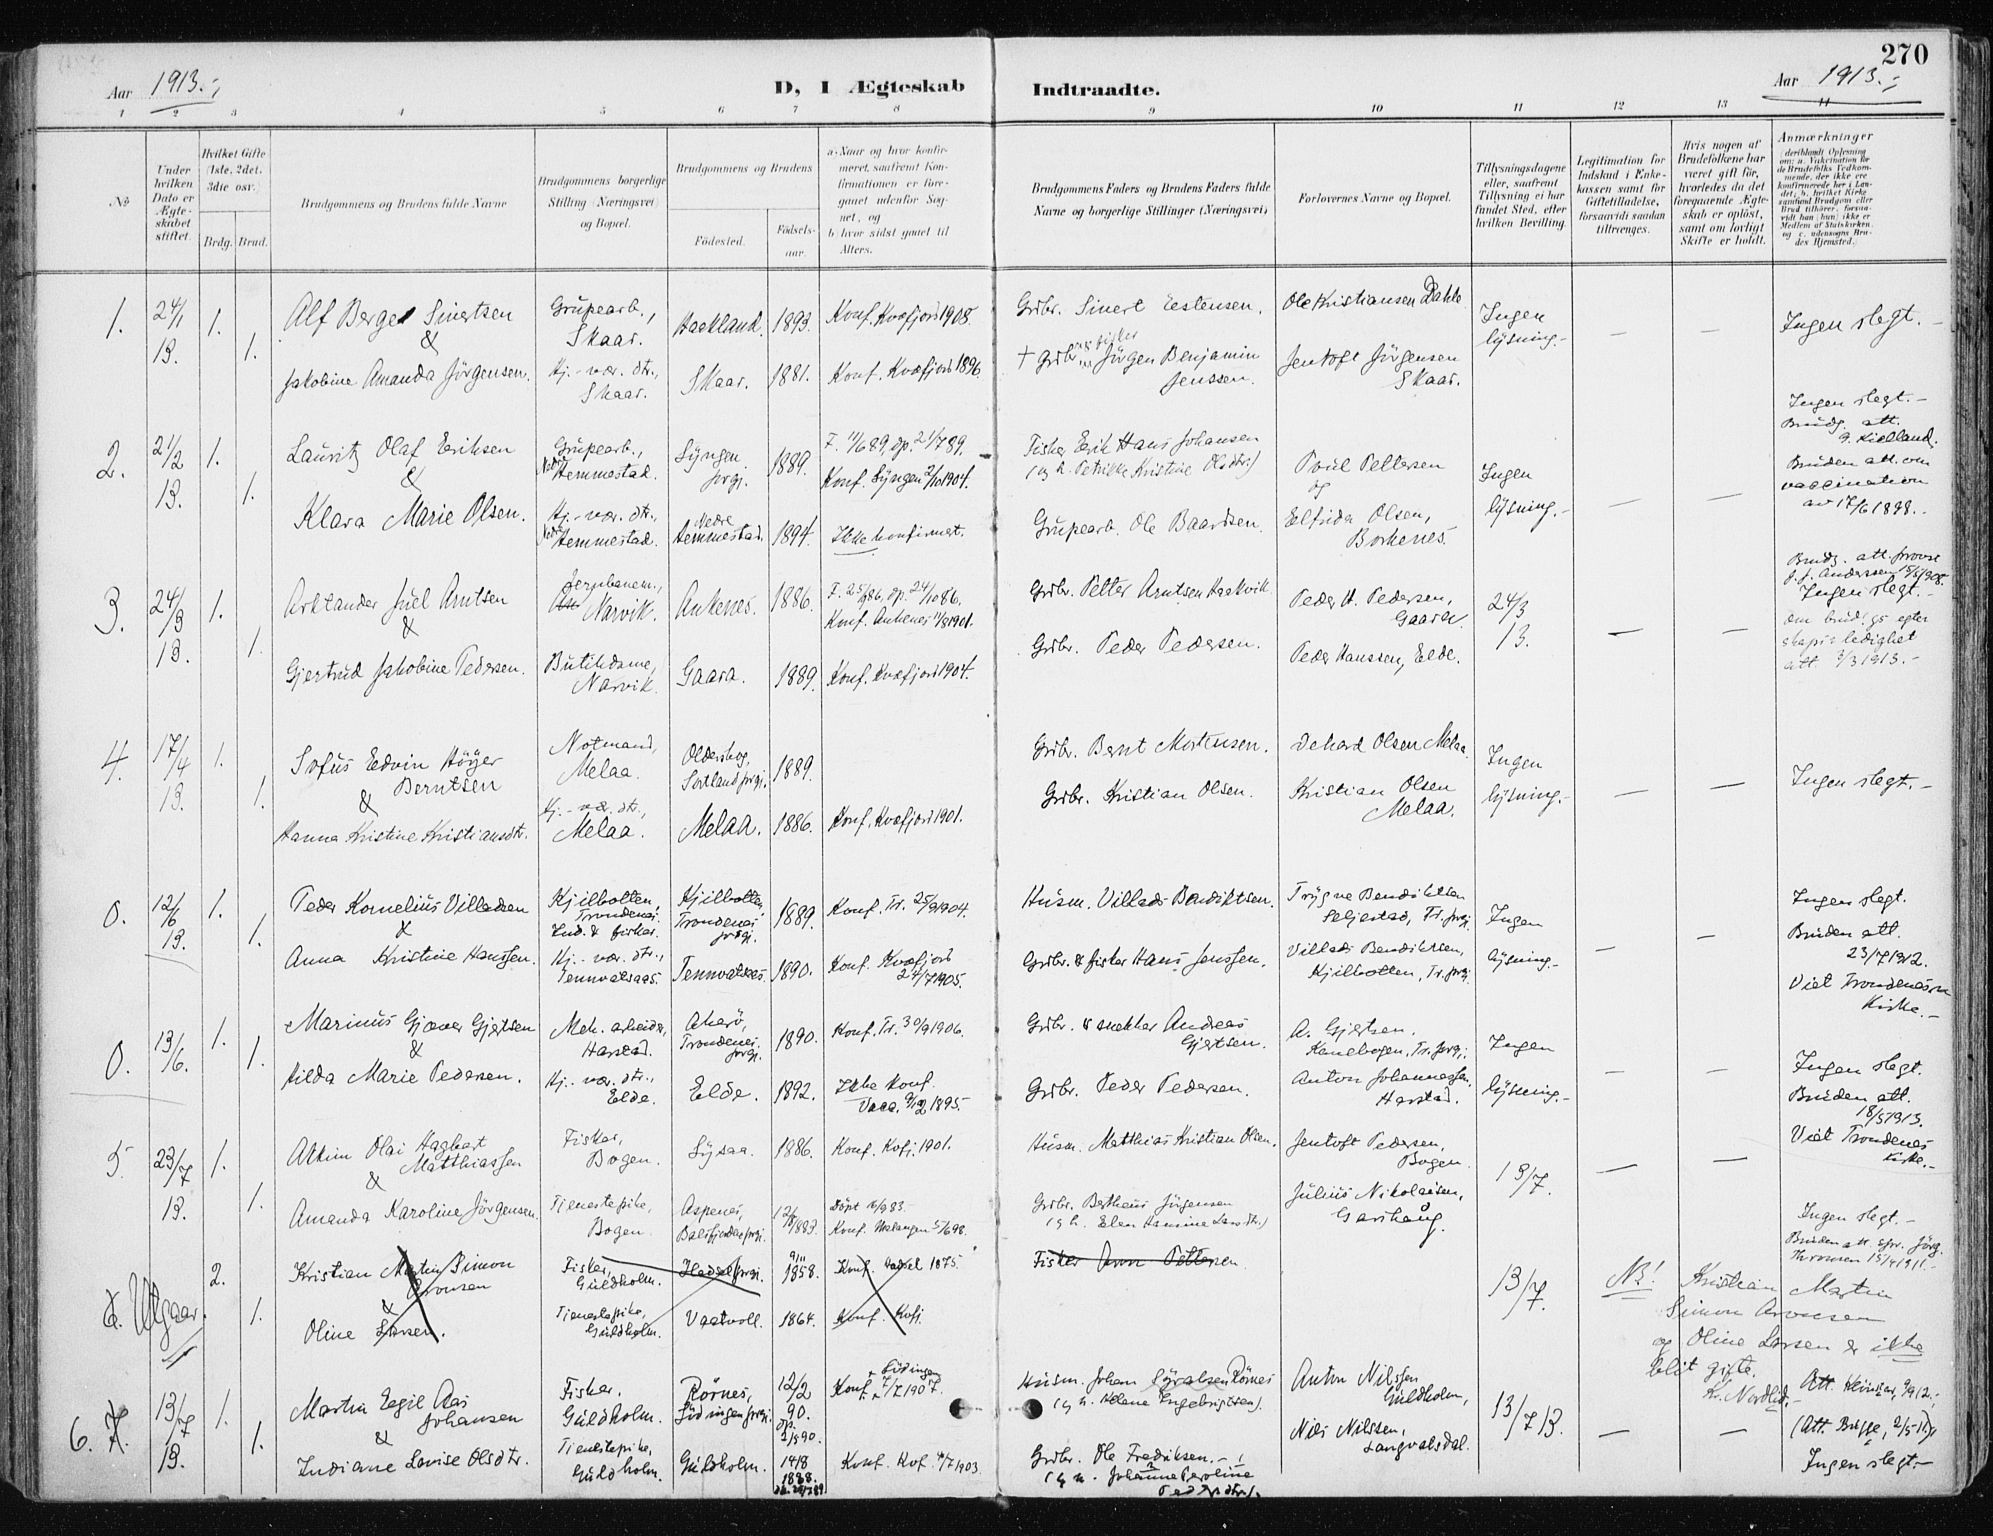 270
Aar 1913.-,
D, I Ægteskab
Indtraadte.
Aar 1913.-,
1 2 3 4 5 6 7 8 9 10 11 12 13 14
No
Under hvilken Dato er Ægteskabet stiftet.
Hvilket Gifte (1ste, 2det, 3die osv.)
Brdg. Brud.
Brudgommens og Brudens fulde Navne
Brudgommens borgerlige Stilling (Næringsvei) og Bopæl.
Brudgommens og Brudens
Fødested.
Fødselsaar.
a. Naar og hvor konfirmeret, saafremt Konfirmationen er foregaaet udenfor Sognet, og
b. hvor sidst gaaet til Alters.
Brudgommens Faders og Brudens Faders fulde Navne og borgerlige Stillinger (Næringsvei)
Forlovernes Navne og Bopæl.
Tillysningsdagene eller, saafremt Tillysning ei har fundet Sted, efter hvilken Bevilling.
Legitimation for Indskud i Enkekassen samt for Giftetilladelse, forsaavidt saadan tiltrænges.
Hvis nogen af Brudefolkene har været gift før, hvorledes da det foregaaende Ægteskab er opløst, samt om lovligt Skifte er holdt.
Anmærkninger
1. 24/1 13. 1. 1.
Alf Berger Sivertsen
&
Jakobine Amanda Jörgensen.
Grubearb., Skaar.
Kj.-vær. dtr., Skaar.
Haakland. 1893. Konf. Kvæfjord 1908.
Skaar. 1881. Konf. Kvæfjord 1896.
Grbr. Sivert Estensen.
† Grbr. og fisker Jörgen Benjamin Jenssen.
Ole Kristiansen Dahle
Jentoft Jörgensen Skaar.
Ingen lysning.-
Ingen slegt.-
2. 21/2 13. 1. 1.
Lauritz Olaf Eriksen
&
Klara Marie Olsen.
Grubearb., Nedre Hemmestad.
Kj.-vær. dtr., Nedre Hemmestad.
Lyngen prgj. 1889. F. 11/6 89, dp. 21/7 89. Konf. Lyngen 2/10 1904.
Nedre Hemmestad. 1894. Ikke konfirmert.
Fisker Erik Hans Johansen
(og h. Petrikke Kristine Olsdtr.)
Grubearb. Ole Baardsen.
Poul Pettersen
og
Elfrida Olsen, Borkenes.
Ingen lysning.-
Ingen slegt.-
Brudg. att. g. Kielland.
Bruden att. om vaccination av 17/6 1898.-
3. 24/3 13. 1. 1.
Arktander Juel Arntsen
&
Gjertrud Jakobine Pedersen.
Jernbanem., Narvik.
Butikdame, Narvik.
Ankenes. 1886. F. 25/9 86, dp. 24/10 86. Konf. Ankenes 11/8 1901.
Gaara. 1889. Konf. Kvæfjord 1904.
Grbr. Petter Arntsen Haakvik.
Grbr. Peder Pedersen.
Peder H. Pedersen, Gaara.
Peder Hanssen, Elde.
24/3 13.
Brudg. att. provst J. J. Andersen 15/5 1908.
Ingen slegt.-
om brudg.s egteskapsledighet att. 3/3 1913.-
4. 17/4 13. 1. 1.
Sofus Edvin Höyer Berntsen
&
Hanna Kristine Kristiansdtr.
Notmand, Melaa.
Kj.-vær. dtr., Melaa.
Oldershog, Sortland prgj. 1889.
Melaa. 1886. Konf. Kvæfjord 1901.
Grbr. Bernt Mortensen.
Grbr. Kristian Olsen.
Dehard Olsen Melaa
Kristian Olsen Melaa.
Ingen lysning.-
Ingen slegt.-
0. 12/6 13. 1. 1.
Peder Kornelius Villadsen
&
Anna Kristine Hanssen.
Kjilbotten, Trondenes. Ind. & fisker.
Kj.-vær. dtr., Tennvatsaas.
Kjilbotten, Trondenes prgj. 1889. Konf. Tr. 25/9 1904.
Tennvatsaas. 1890. Konf. Kvæfjord 24/7 1905.
Husm. Villads Bendiktsen.
Grbr. & fisker Hans Jenssen.
Trygve Bendiktsen Seljestad, Tr. prgj.
Villads Bendiktsen, Kjilbotten, Tr. prgj.
Ingen lysning.-
Ingen slegt.
Bruden att. 23/7 1912.
Viet Trondenes Kirke.-
0. 13/6. 1. 1.
Marinus Gjæver Gjertsen
&
Hilda Marie Pedersen.
Mek. arbeider, Harstad.
Kj.-vær. dtr., Elde.
Akerö, Trondenes prgj. 1890. Konf. Tr. 30/9 1906.
Elde. 1892. Ikke konf. Vacc. 9/12 1895.
Grbr. & snekker Andreas Gjertsen.
Grbr. Peder Pedersen.
A. Gjertsen. Kanebogen, Tr. prgj.
Anton Johannessen, Harstad.
Ingen lysning.-
Ingen slegt.
Bruden att. 18/5 1913.
Viet Trondenes kirke.-
5 23/7 13. 1. 1.
Akim Olai Hagbart Matthiassen
&
Amanda Karoline Jörgensen.
Fisker, Bogen.
Tjenestepike, Bogen.
Lysaa. 1886. Konf. Kvfj. 1901.
Aspenes, Balsfjorden prgj. 1883. Konf. Malangen 5/6 98.
Husm. Matthias Kristian Olsen.
Grbr. Bertheus Jörgensen
(og h. Elen Hansine Larsdtr.)
Jentoft Pedersen, Bogen.
Julius Nikolaisen, Gaashaug.
13/7.
Ingen slegt.-
6. Utgaar. 2. 1.
Kristian Martin Simon Aronsen
&
Oline Larsen.
Fisker, Guldholm.
Tjenestepike, Guldholm.
Hadsel prgj. 1858. Konf. Hadsel 1875.
Vaatvoll. 1864. Konf. Kvfj.
Fisker Aron Pettersen.
13/7.
NB! Kristian Martin Simon Aronsen og Oline Larsen er ikke blit gifte.
K. Nordlid.-
6. 7. 13/7 13. 1. 1.
Martin Egil Aas Johansen
&
Indiane Lovise Olsdtr.
Fisker, Guldholm.
Tjenestepike, Guldholm.
Rörnes, Lödingen prgj. 12/2 90. Konf. Lödingen 7/7 1907.
Guldholm. 1888. Konf. Kvf. 1903.
Husm. Johan Rörnes
(og h. Helene Ingebrigtsen).
Grbr. Ole Fredriksen.-
(og h. Johanne Peroline Pedersdtr.).
Anton Nilssen Guldholm,
Nils Nilssen, Langvasdal.
13/7 13.
Ingen slegt.-